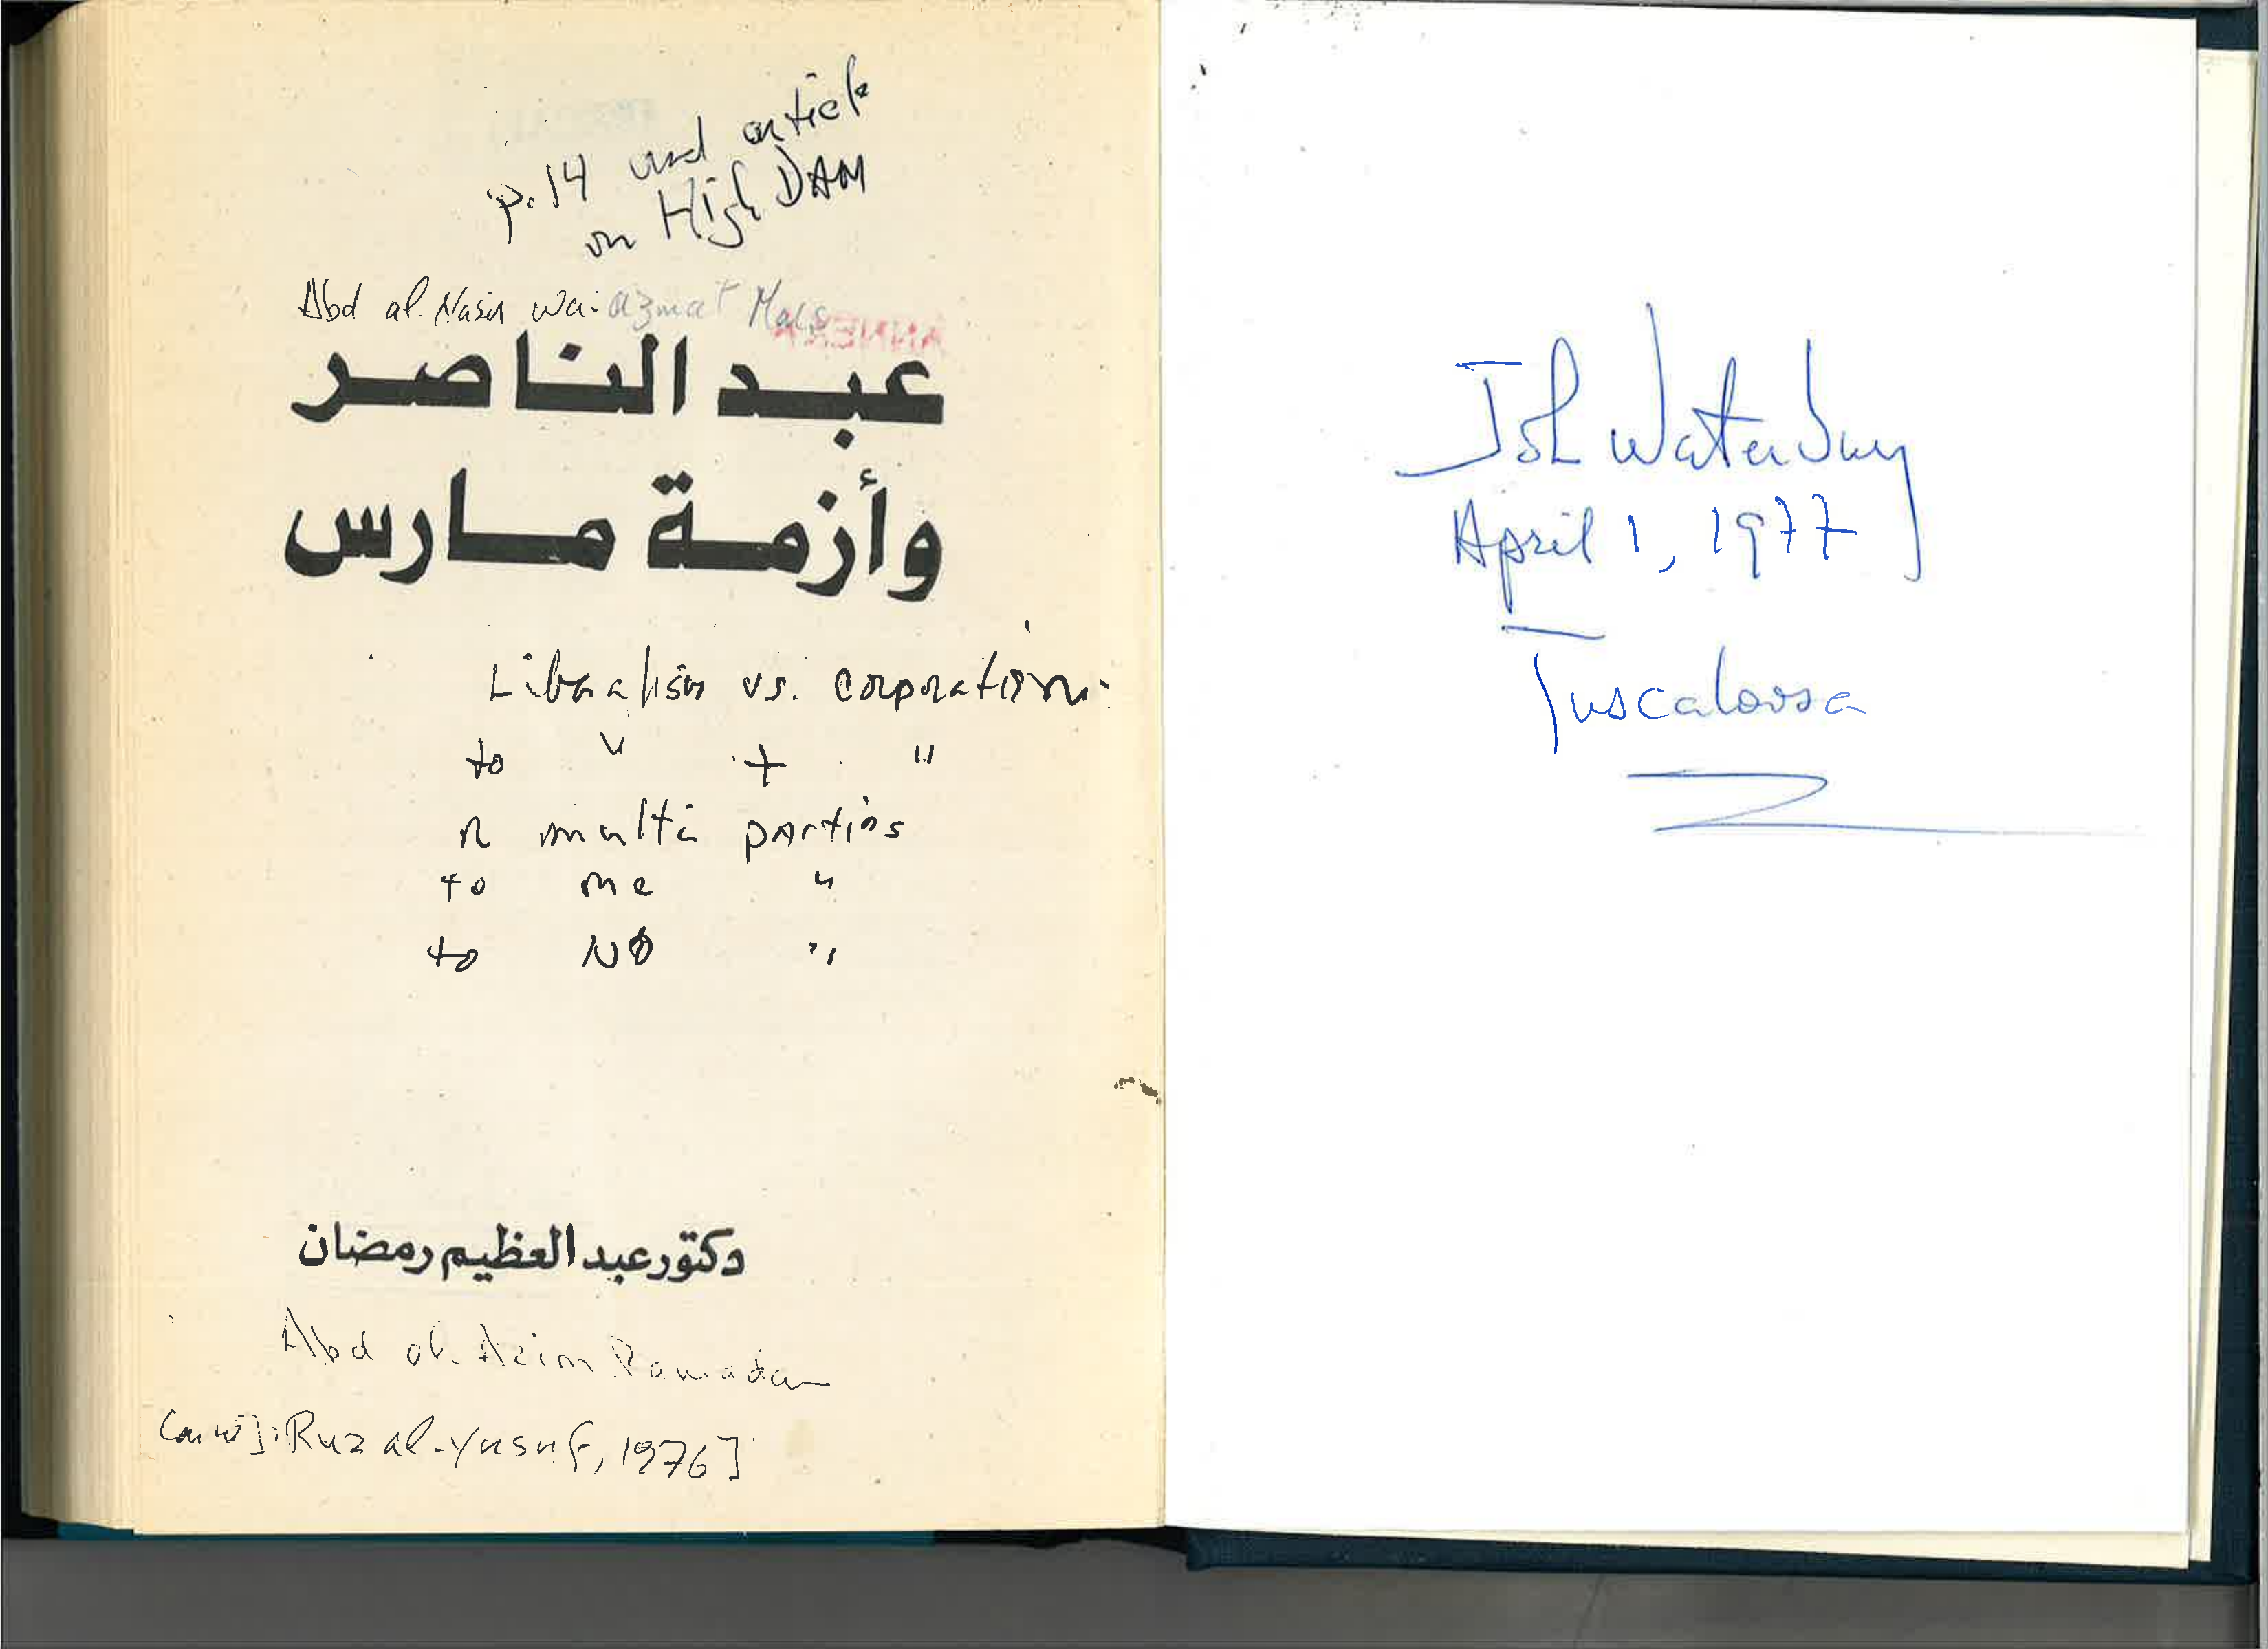 p. 14 used article
on High DAM
Abd al-Nasir wa-azmat Mars
ANNEX A
عبد الناصر
وأزمة مارس
Liberalism vs. corporatism.
to " + "
multi parties
to one "
to NO "
دكتور عبد العظيم رمضان
Abd al-Azim Ramadan
: Ruz al-Yusuf, 1976]
John Waterbury
April 1, 1977
Tuscaloosa